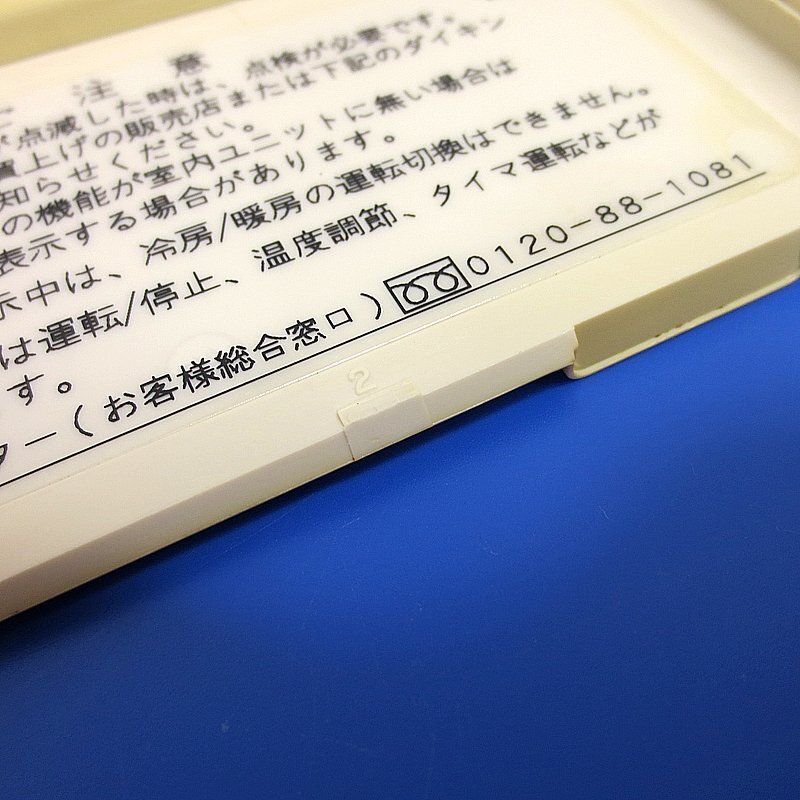 注 意
点滅した時は、点検が必要です。
質上げの販売店または下記のダイキン
知らせください。
の機能が室内ユニットに無い場合は
表示する場合があります。
示中は、冷房/暖房の運転切換はできません。
は運転/停止、温度調節、タイマ運転などが
す。
ター(お客様総合窓口)0120-88-1081
2